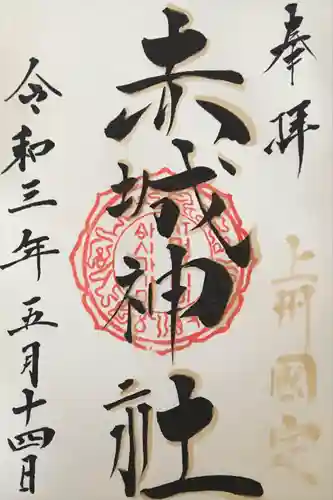 奉拝
上州国定
赤城神社
令和三年五月十四日